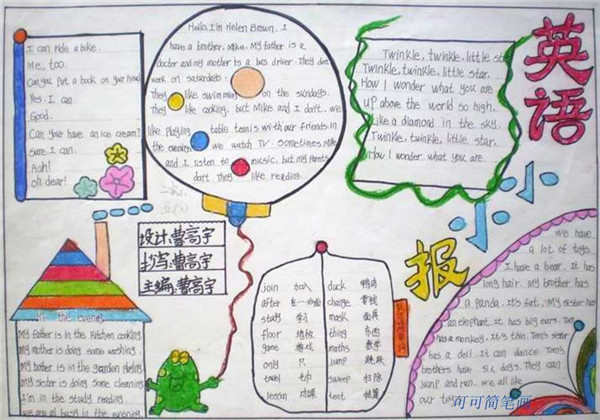 I can ride a bike.
Me, too.
Can you put a book on your head
Yes. I can.
Good.
Can you have an ice cream?
Sure. I can.
Ash!
Oh dear!
Hello, I'm Helen Brown. I
have a brother, Mike. My father is a
doctor and my mother is a bus driver. They don't
work on saturdays.
They like swimming on the sundays.
They like cooking, but Mike and I don't. we
like playing table tennis with our friends in
the evening. we watch TV. sometimes Mike
and I listen to music, but my parents
don't. They like reading.
Twinkle, twinkle, little star
Twinkle, twinkle, little star.
How I wonder what you are
up above the world so high,
Like a diamond in the sky.
Twinkle, twinkle, little star.
How I wonder what you are.
英语
小小
报
设计:曹高宇
抄写:曹高宇
主编:曹高宇
In the evening
My father is in the kitchen cooking
My mother is doing some washing
My father is in the garden
My sister is doing some cleaning
I'm in the study reading
join 加入
after 在…
study 学习
floor 地板
game 游戏
only 只
lesson 功课
duck 鸭子
change 零钱
mask 面具
thing 东西
maths 数学
jump 跳跃
sweep 扫除
We have
a lot of toys.
I have a bear. It has
long hair. My brother has
a panda. It's fat. My sister has
an elephant. It has big ears. Tom
has a monkey. It's thin. Tom's sister
has a doll. It can dance. Tom's
brothers have six dogs. They can
jump and run. we all like
our toys.
可可简笔画